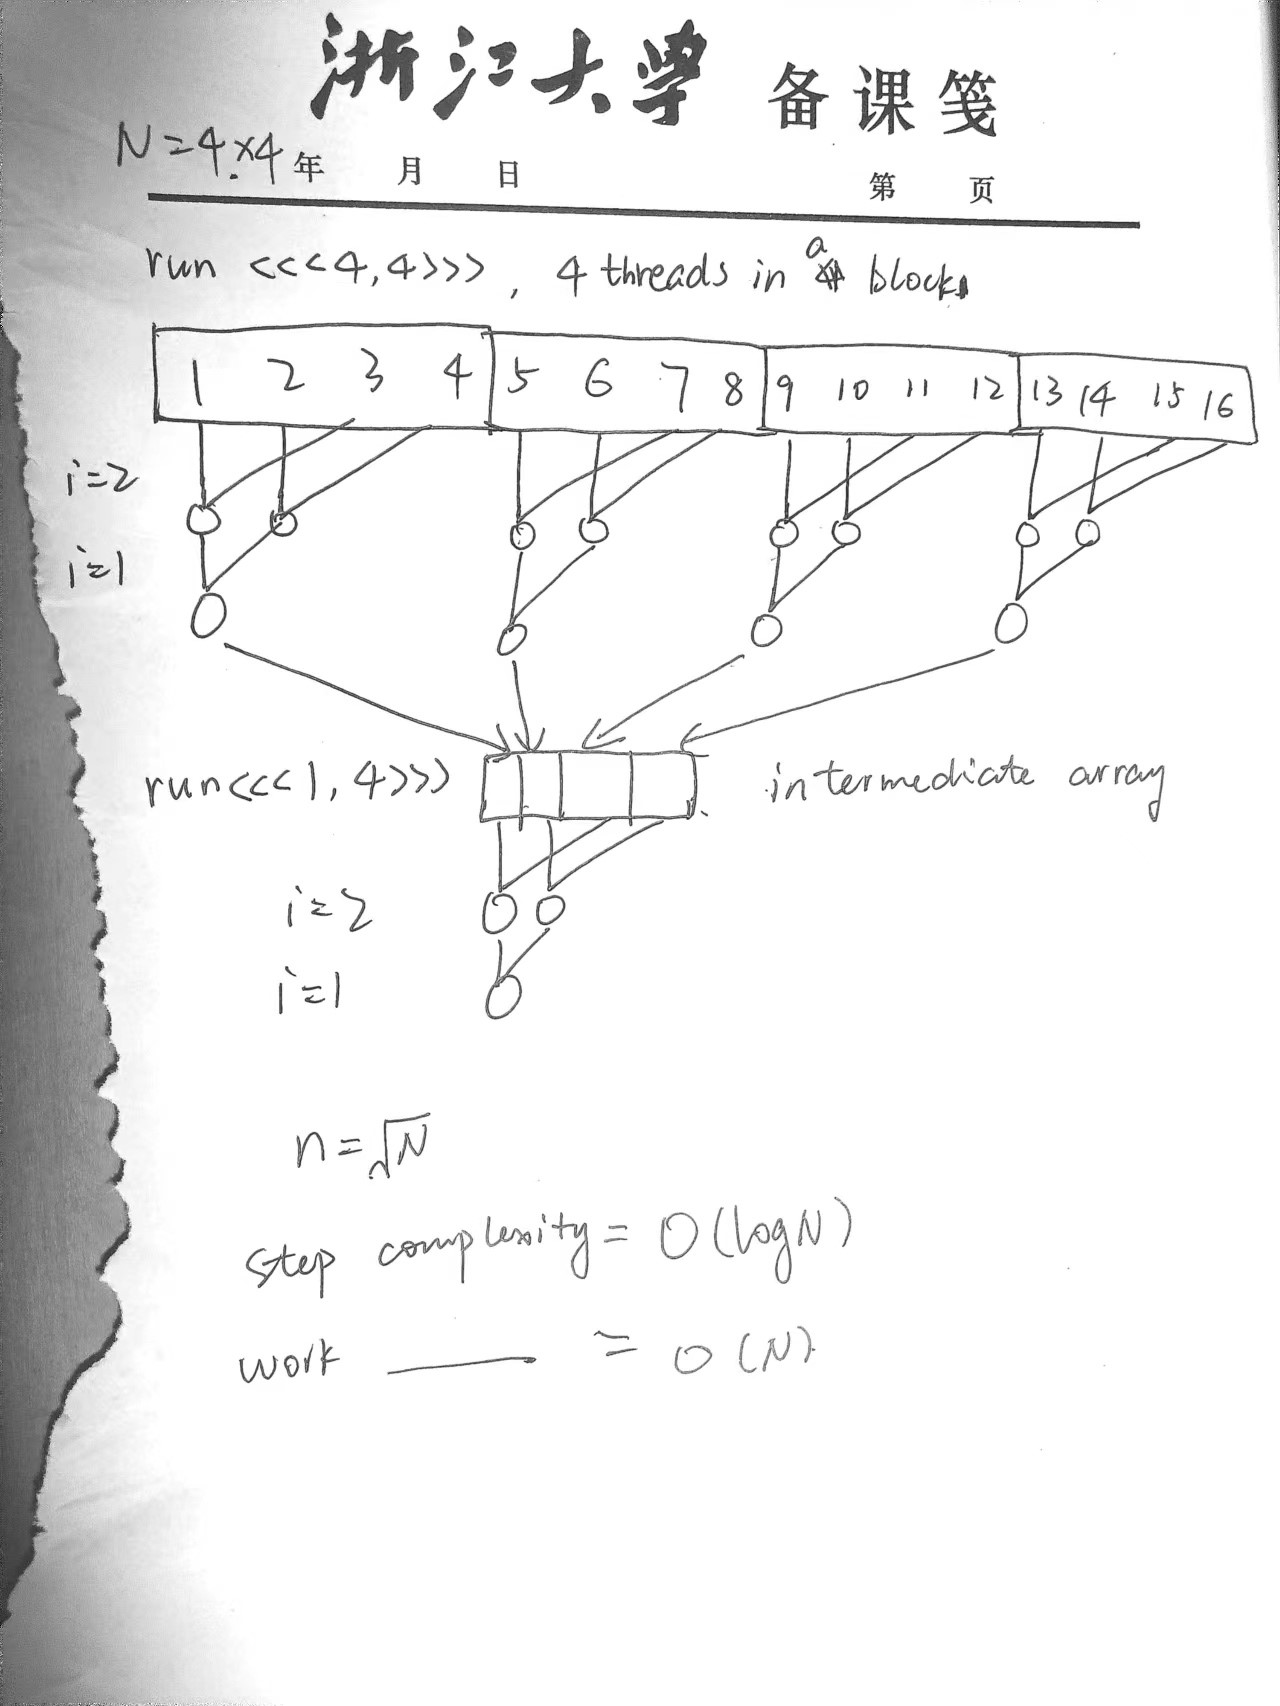 浙江大学 备课笺
N=4×4 年 月 日 第 页
run <<<4,4>>>, 4 threads in a block
1 2 3 4 5 6 7 8 9 10 11 12 13 14 15 16
i=2
i=1
run<<<1,4>>> intermediate array
i=2
i=1
n=√N
step complexity = O(logN)
work —— = O(N)